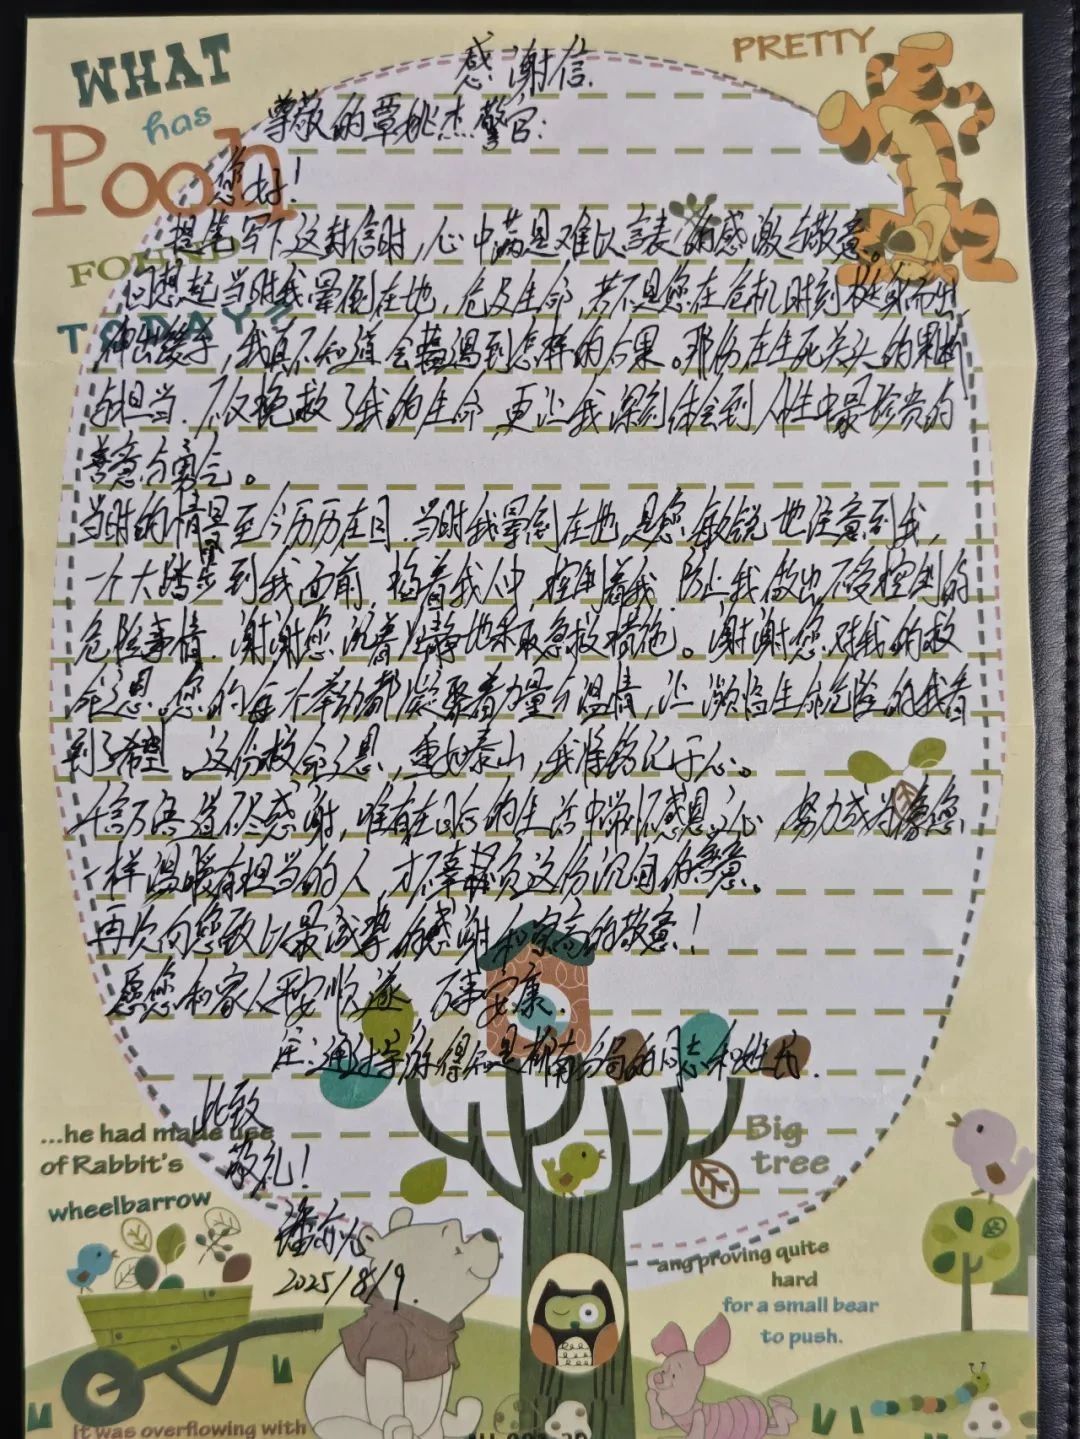 WHAT
has
Pooh
FOUND
TODAY?
PRETTY
感谢信.
尊敬的覃桃杰警官:
您好!
提笔写下这封信时,心中满是难以言表的感激与敬意。
回想起当时我晕倒在地,危及生命,若不是您在危机时刻挺身而出,
伸出援手,我真不知道会遭遇到怎样的后果。那份在生死关头的果断
与担当.不仅挽救了我的生命,更让我深刻体会到人性中最珍贵的
善意与勇气。
当时的情景至今历历在目.当时我晕倒在地,是您敏锐地注意到我,
一个大踏步到我面前,掐着我人中,控制着我,防止我做出不受控制的
危险事情.谢谢您沉着冷静地采取急救措施。谢谢您对我的救
命之恩.您的每个举动都凝聚着力量与温情,让濒临生命危险的我看
到了希望.这份救命之恩,重如泰山,我将铭记于心。
千言万语道不尽感谢,唯有在日后的生活中常怀感恩之心,努力成为像您
一样温暖有担当的人,才不辜负这份沉甸的善意。
再次向您致以最诚挚的感谢和崇高的敬意!
愿您和家人平安顺遂,万事安康.
注:通过
得知是柳南分局的同志和姓氏.
此致
敬礼!
潘
2025/8/9.
...he had made use
of Rabbit's
wheelbarrow
Big
tree
ang proving quite
hard
for a small bear
to push.
it was overflowing with